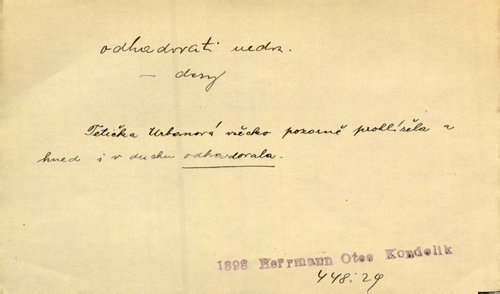 odhadovati nedok.
— dary
Tetička Urbanová všecko pozorně prohlížela a
hned i v duchu odhadovala.
1898 Herrmann Otec Kondelík
448: 29